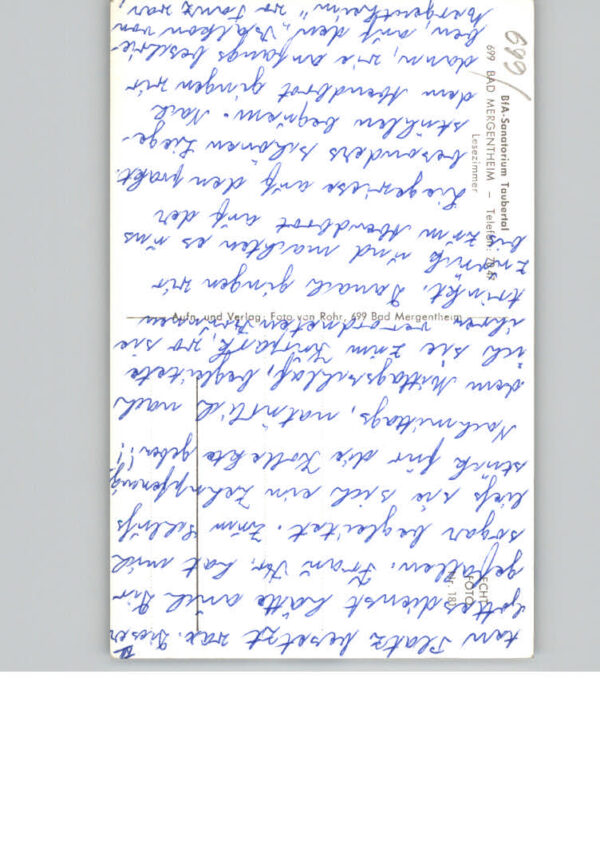 II
ten Platz besetzt war. Dieser
Gottesdienst hätte auch Dir
gefallen. Frau Kr. hat mich
sogar begleitet. Zum Schluß
ließ sie sich ein Zehnpfennig-
stück für die Kollekte geben!!
Nachmittags, natürlich nach
dem Mittagsschlaf, begleitete
ich sie zum Kurpark, wo sie
ihren verordneten Brunnen
trinkt. Danach gingen wir
zurück und machten es uns
bis zum Abendbrot auf der
Liegewiese auf den
besonders schönen Liege-
stühlen bequem. Nach
dem Abendbrot gingen wir
dann, wie anfangs beschrie-
ben, auf den "Balkon von
Mergentheim" wo Tanz war,
699/
BfA-Sanatorium Taubertal
699 BAD MERGENTHEIM – Telefon:
Lesezimmer
Aufn. und Verlag: Foto von Rohr, 699 Bad Mergentheim
ECHT
FOTO
Nr.